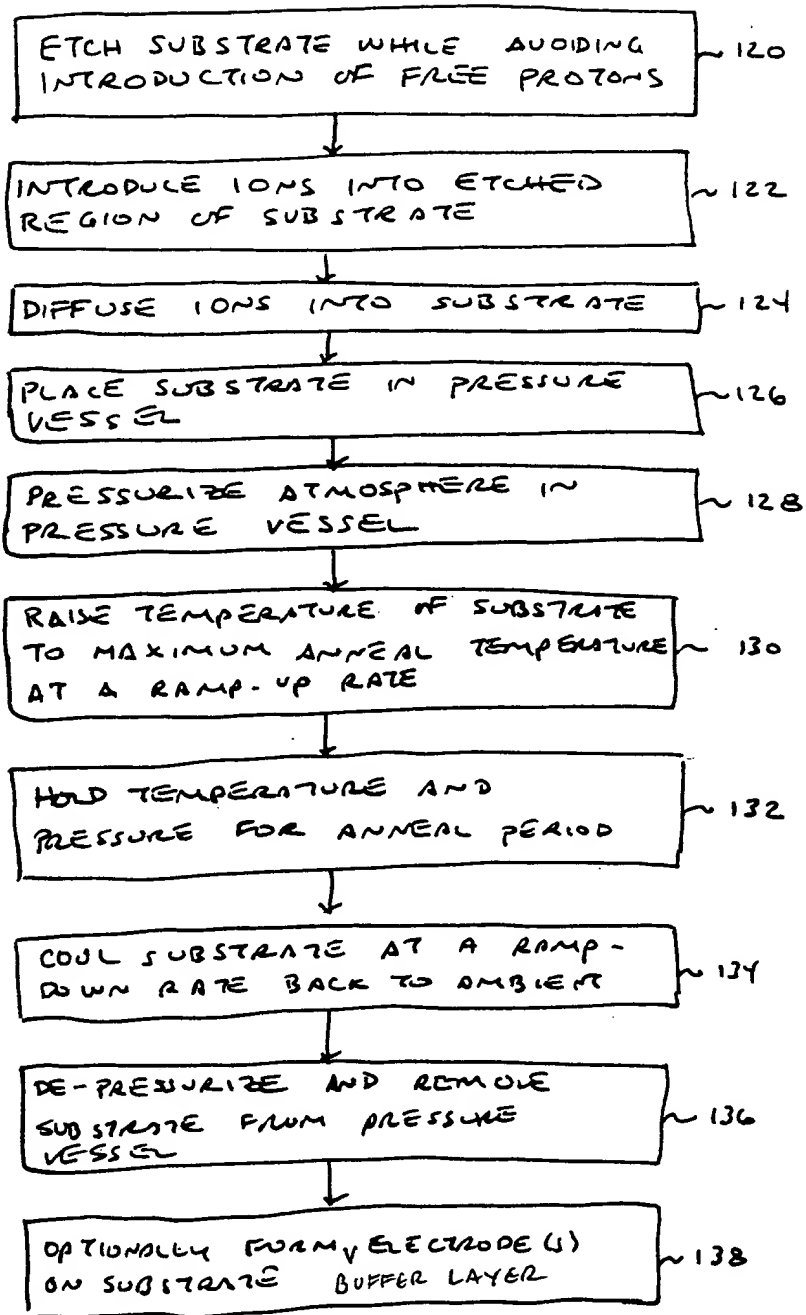 ETCH SUBSTRATE WHILE AVOIDING ~ 120
INTRODUCTION OF FREE PROTONS
INTRODUCE IONS INTO ETCHED
REGION OF SUBSTRATE ~ 122
DIFFUSE IONS INTO SUBSTRATE ~ 124
PLACE SUBSTRATE IN PRESSURE
VESSEL ~ 126
PRESSURIZE ATMOSPHERE IN
PRESSURE VESSEL ~ 128
RAISE TEMPERATURE OF SUBSTRATE
TO MAXIMUM ANNEAL TEMPERATURE ~ 130
AT A RAMP-UP RATE
HOLD TEMPERATURE AND
PRESSURE FOR ANNEAL PERIOD ~ 132
COOL SUBSTRATE AT A RAMP-
DOWN RATE BACK TO AMBIENT ~ 134
DE-PRESSURIZE AND REMOVE
SUBSTRATE FROM PRESSURE ~ 136
VESSEL
OPTIONALLY FORM ELECTRODE(S) ~ 138
ON SUBSTRATE BUFFER LAYER